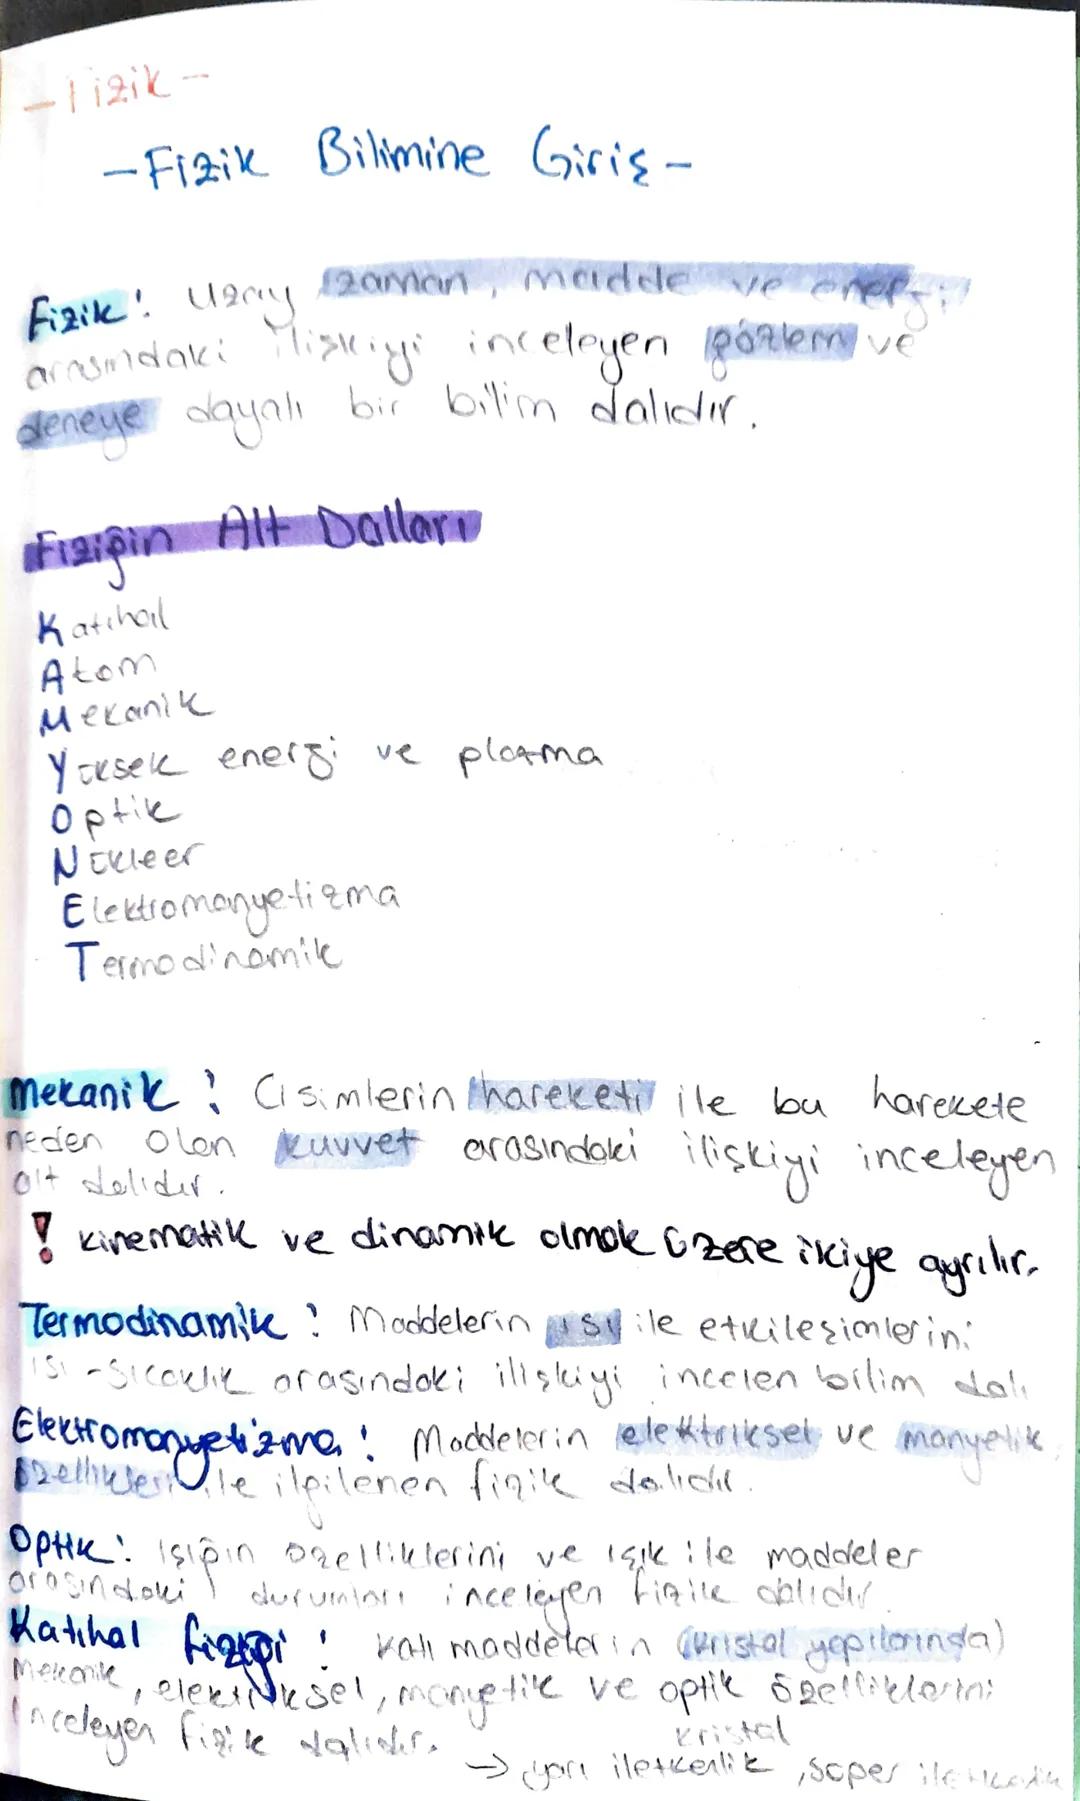 - Fizik -
- Fizik Bilimine Giriş -
Fizik: Uzay zaman, madde ve enerji
arasındaki ilişkiyi inceleyen gözlem ve
deneye dayalı bir bilim dalıdır.
Fiziğin Alt Dalları
Katıhal
Atom
Mekanik
Yüksek enerji ve plazma
Optik
Nükleer
Elektromanyetizma
Termodinamik
Mekanik: Cisimlerin hareketi ile bu harekete
neden olan kuvvet arasındaki ilişkiyi inceleyen
alt dalıdır.
! Kinematik ve dinamik olmak üzere ikiye ayrılır.
Termodinamik: Maddelerin ısı ile etkileşimlerini
ısı-sıcaklık arasındaki ilişkiyi incelen bilim dalı
Elektromanyetizma: Maddelerin elektriksel ve manyetik
özellikleri ile ilgilenen fizik dalıdır.
Optik: Işığın özelliklerini ve ışık ile maddeler
arasındaki durumları inceleyen fizik dalıdır.
Katıhal fiziği: Katı maddelerin (kristal yapılarında)
Mekanik, elektriksel, manyetik ve optik özelliklerini
inceleyen fizik dalıdır.
kristal
→ yarı iletkenlik, süper iletkenlik